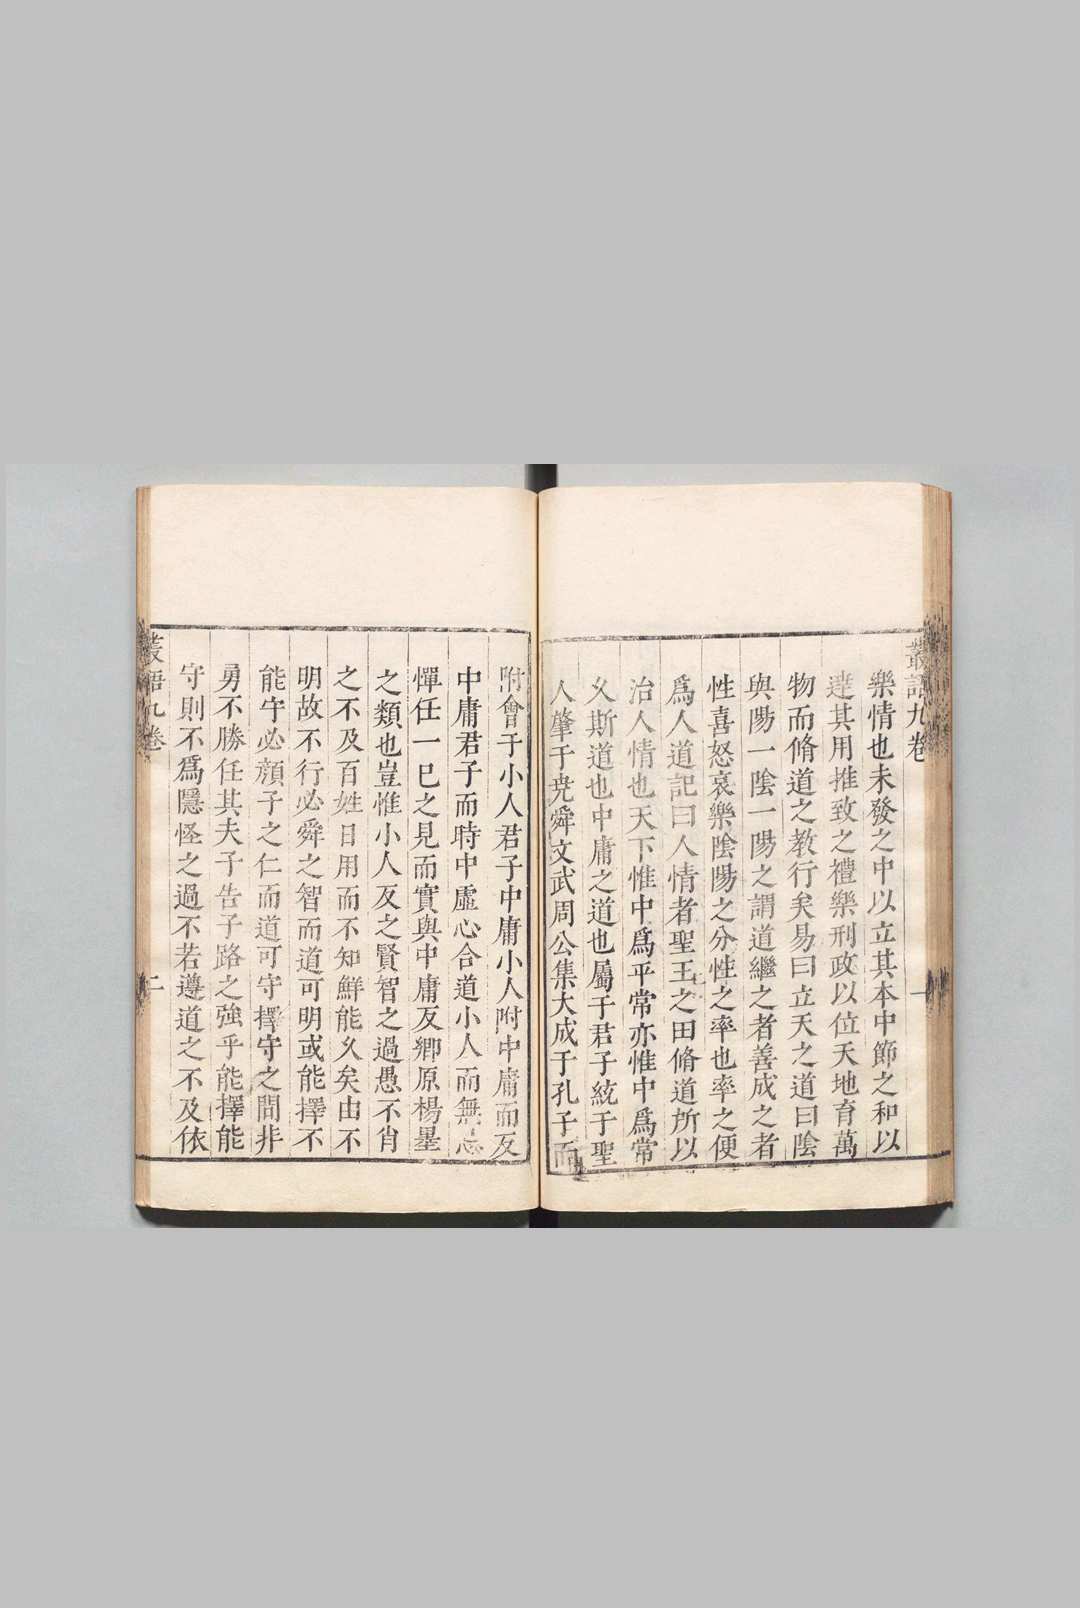 叢語九卷
樂情也未發之中以立其本中節之和以
達其用推致之禮樂刑政以位天地育萬
物而脩道之教行矣易曰立天之道曰陰
與陽一陰一陽之謂道繼之者善成之者
性喜怒哀樂陰陽之分性之率也率之便
爲人道記曰人情者聖王之田脩道所以
治人情也天下惟中爲平常亦惟中爲常
乆斯道也中庸之道也屬于君子統于聖
人肇于尭舜文武周公集大成于孔子而
附會于小人君子中庸小人附中庸而反
中庸君子而時中虛心合道小人而無忌
憚任一巳之見而實與中庸反鄉原楊墨
之類也豈惟小人反之賢智之過愚不肖
之不及百姓日用而不知鮮能乆矣由不
明故不行必舜之智而道可明或能擇不
能守必顔子之仁而道可守擇守之間非
勇不勝任其夫子告子路之強乎能擇能
守則不爲隱怪之過不若遵道之不及依
叢語九卷
二